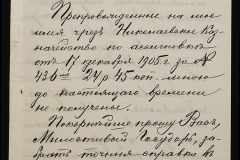 Препровожденные на мое
имя чрезъ Николаевское Каз
начейство по ассигновкѣ
отъ 17 декабря 1905 г. за №
24 р 45 коп. мною
до настоящаго времени
не получены.
Покорнѣйше прошу Васъ,
Милостивый Государь,
справки